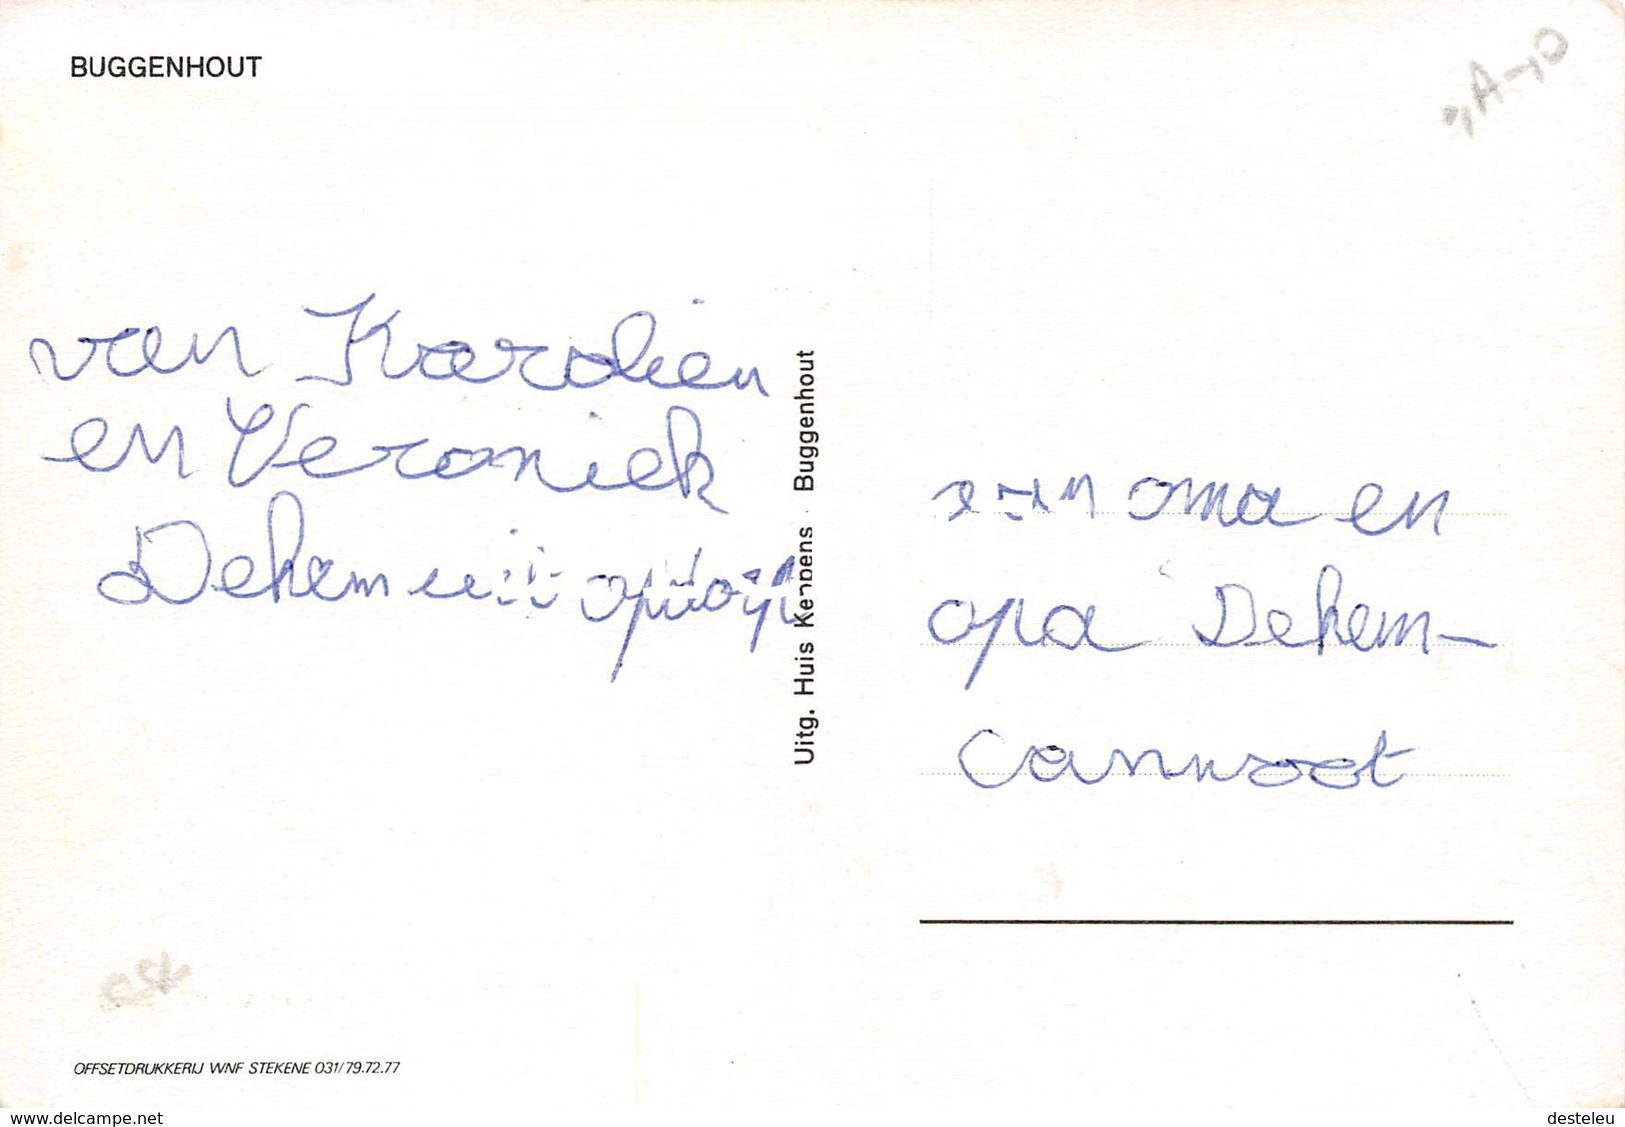 BUGGENHOUT
van Karolien
en Veroniek
Dehem uit
oma en
opa Dehem-
Cannoot
Uitg. Huis Keppens - Buggenhout
OFFSETDRUKKERIJ WNF STEKENE 031/79.72.77
www.delcampe.net
desteleu